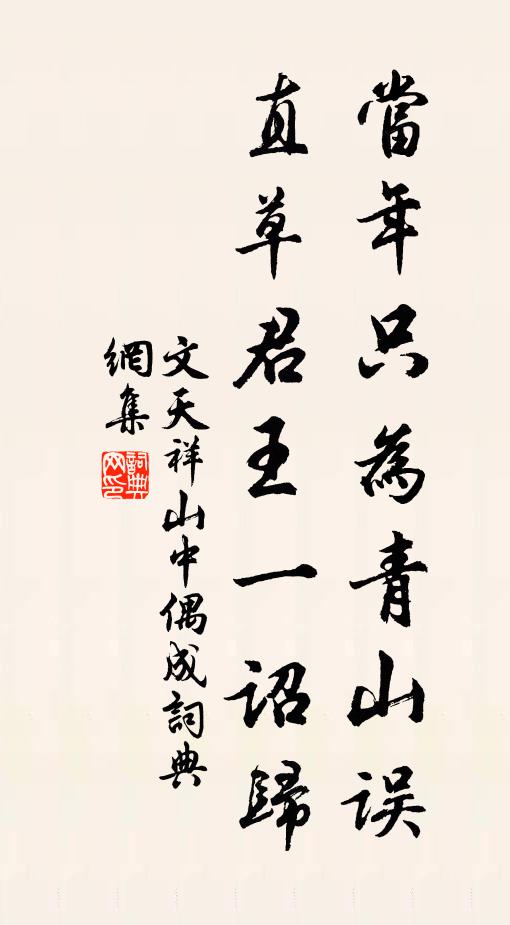 當年只為青山誤
直草君王一詔歸
文天祥山中偶成詞典
網集
詞典
网印